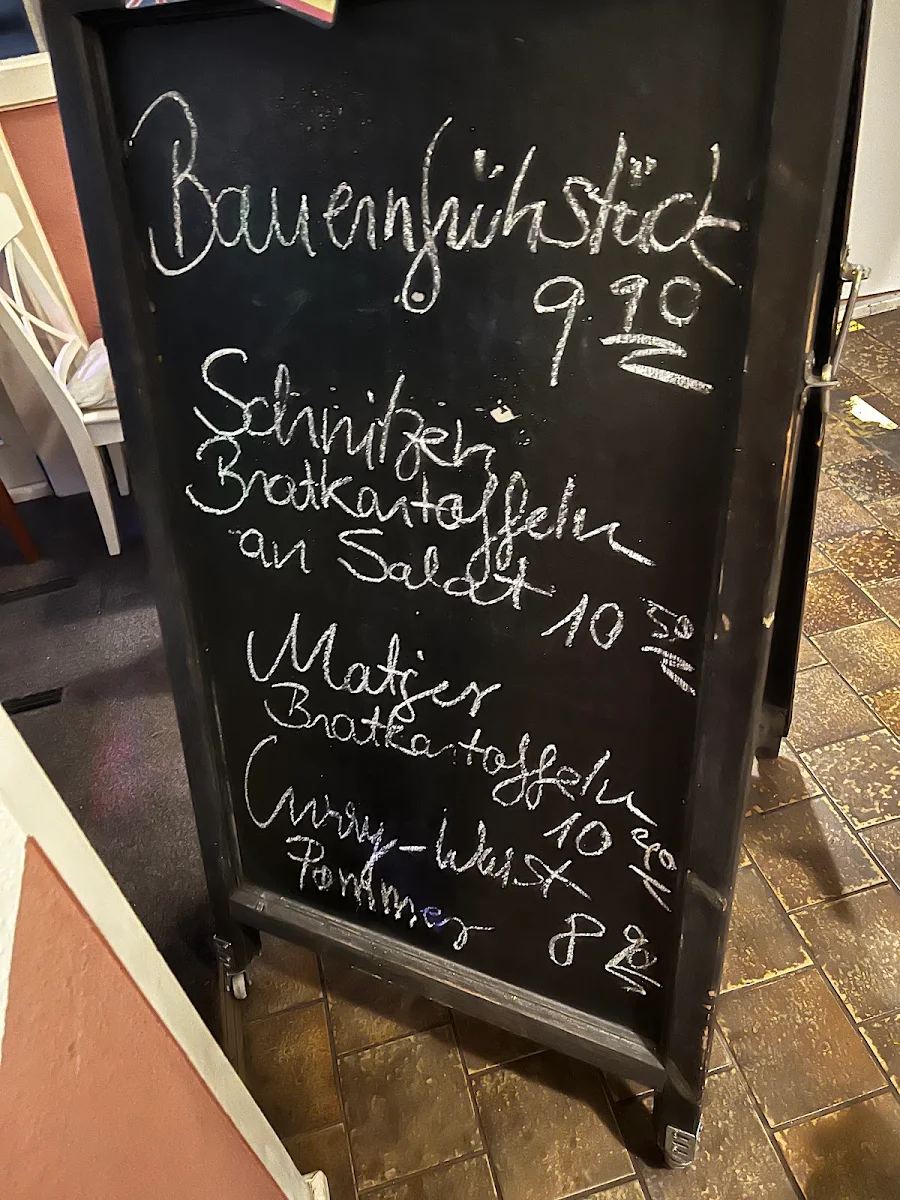 Bauernfrühstück
9 90
Schnitzel
Bratkartoffeln
an Salat 10 50
Matjes
Bratkartoffeln
10 90
Curry-Wurst
Pommes
8 90